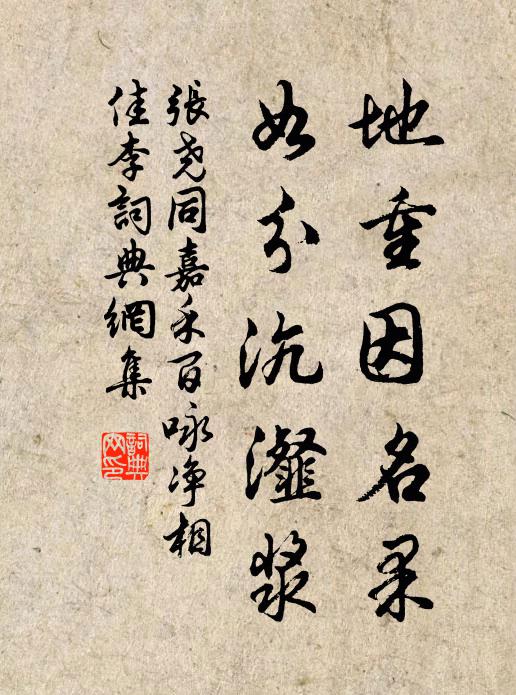 地重因名果
如分沆瀣漿
張尧同嘉禾百咏净相
佳李詞典網集
詞典网印